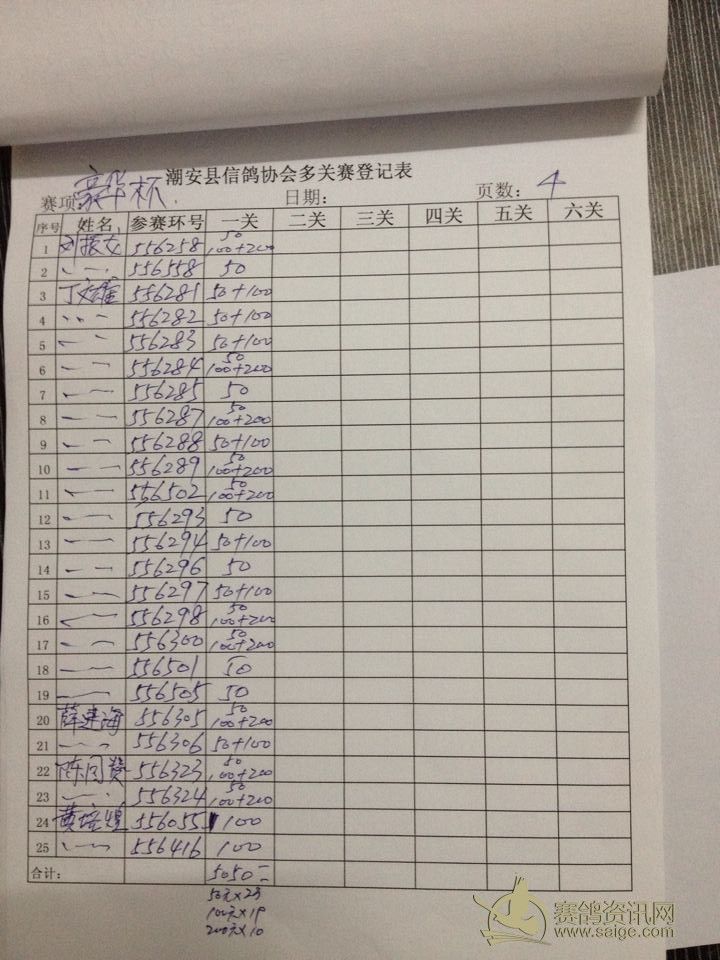 潮安县信鸽协会多关赛登记表
赛项: 豪华杯 日期: 页数: 4
序号 姓名 参赛环号 一关 二关 三关 四关 五关 六关
1 刘振文 556258 50 100+200
2 556558 50
3 丁 556281 50+100
4 556282 50+100
5 556283 50+100
6 556284 50 100+200
7 556285 50
8 556287 50 100+200
9 556288 50+100
10 556289 50 100+200
11 556502 50 100+200
12 556293 50
13 556294 50+100
14 556296 50
15 556297 50+100
16 556298 50 100+200
17 556300 50 100+200
18 556501 50
19 556505 50
20 薛建海 556305 50 100+200
21 556306 50+100
22 陈 556323 50 100+200
23 556324 50 100+200
24 黄培煌 556055 100
25 556416 100
合计: 5050
50元×23
100元×19
200元×10
赛鸽资讯网
www.saige.com